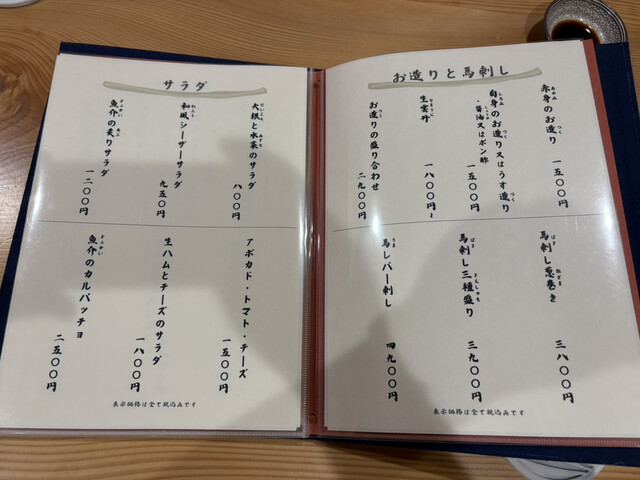 お造りと馬刺し
赤身のお造り
あかみ
つく
一五〇〇円
白身のお造り又はうす造り
しろみ
つく
づく
・醤油又はポン酢
一五〇〇円
生雲丹
なまうに
一八〇〇円~
お造りの盛り合わせ
つく
二九〇〇円
馬刺し葱巻き
ばさ
ねぎま
三八〇〇円
馬刺し三種盛り
ばさ
さんしゅも
三九〇〇円
馬レバー刺し
うま
四九〇〇円
表示価格は全て税込みです
サラダ
大根と水菜のサラダ
だいこん
みずな
八〇〇円
和風シーザーサラダ
わふう
九五〇円
魚介の炙りサラダ
ぎょかい
あぶ
一二〇〇円
アボカド・トマト・チーズ
一五〇〇円
生ハムとチーズのサラダ
一八〇〇円
魚介のカルパッチョ
ぎょかい
二五〇〇円
表示価格は全て税込みです